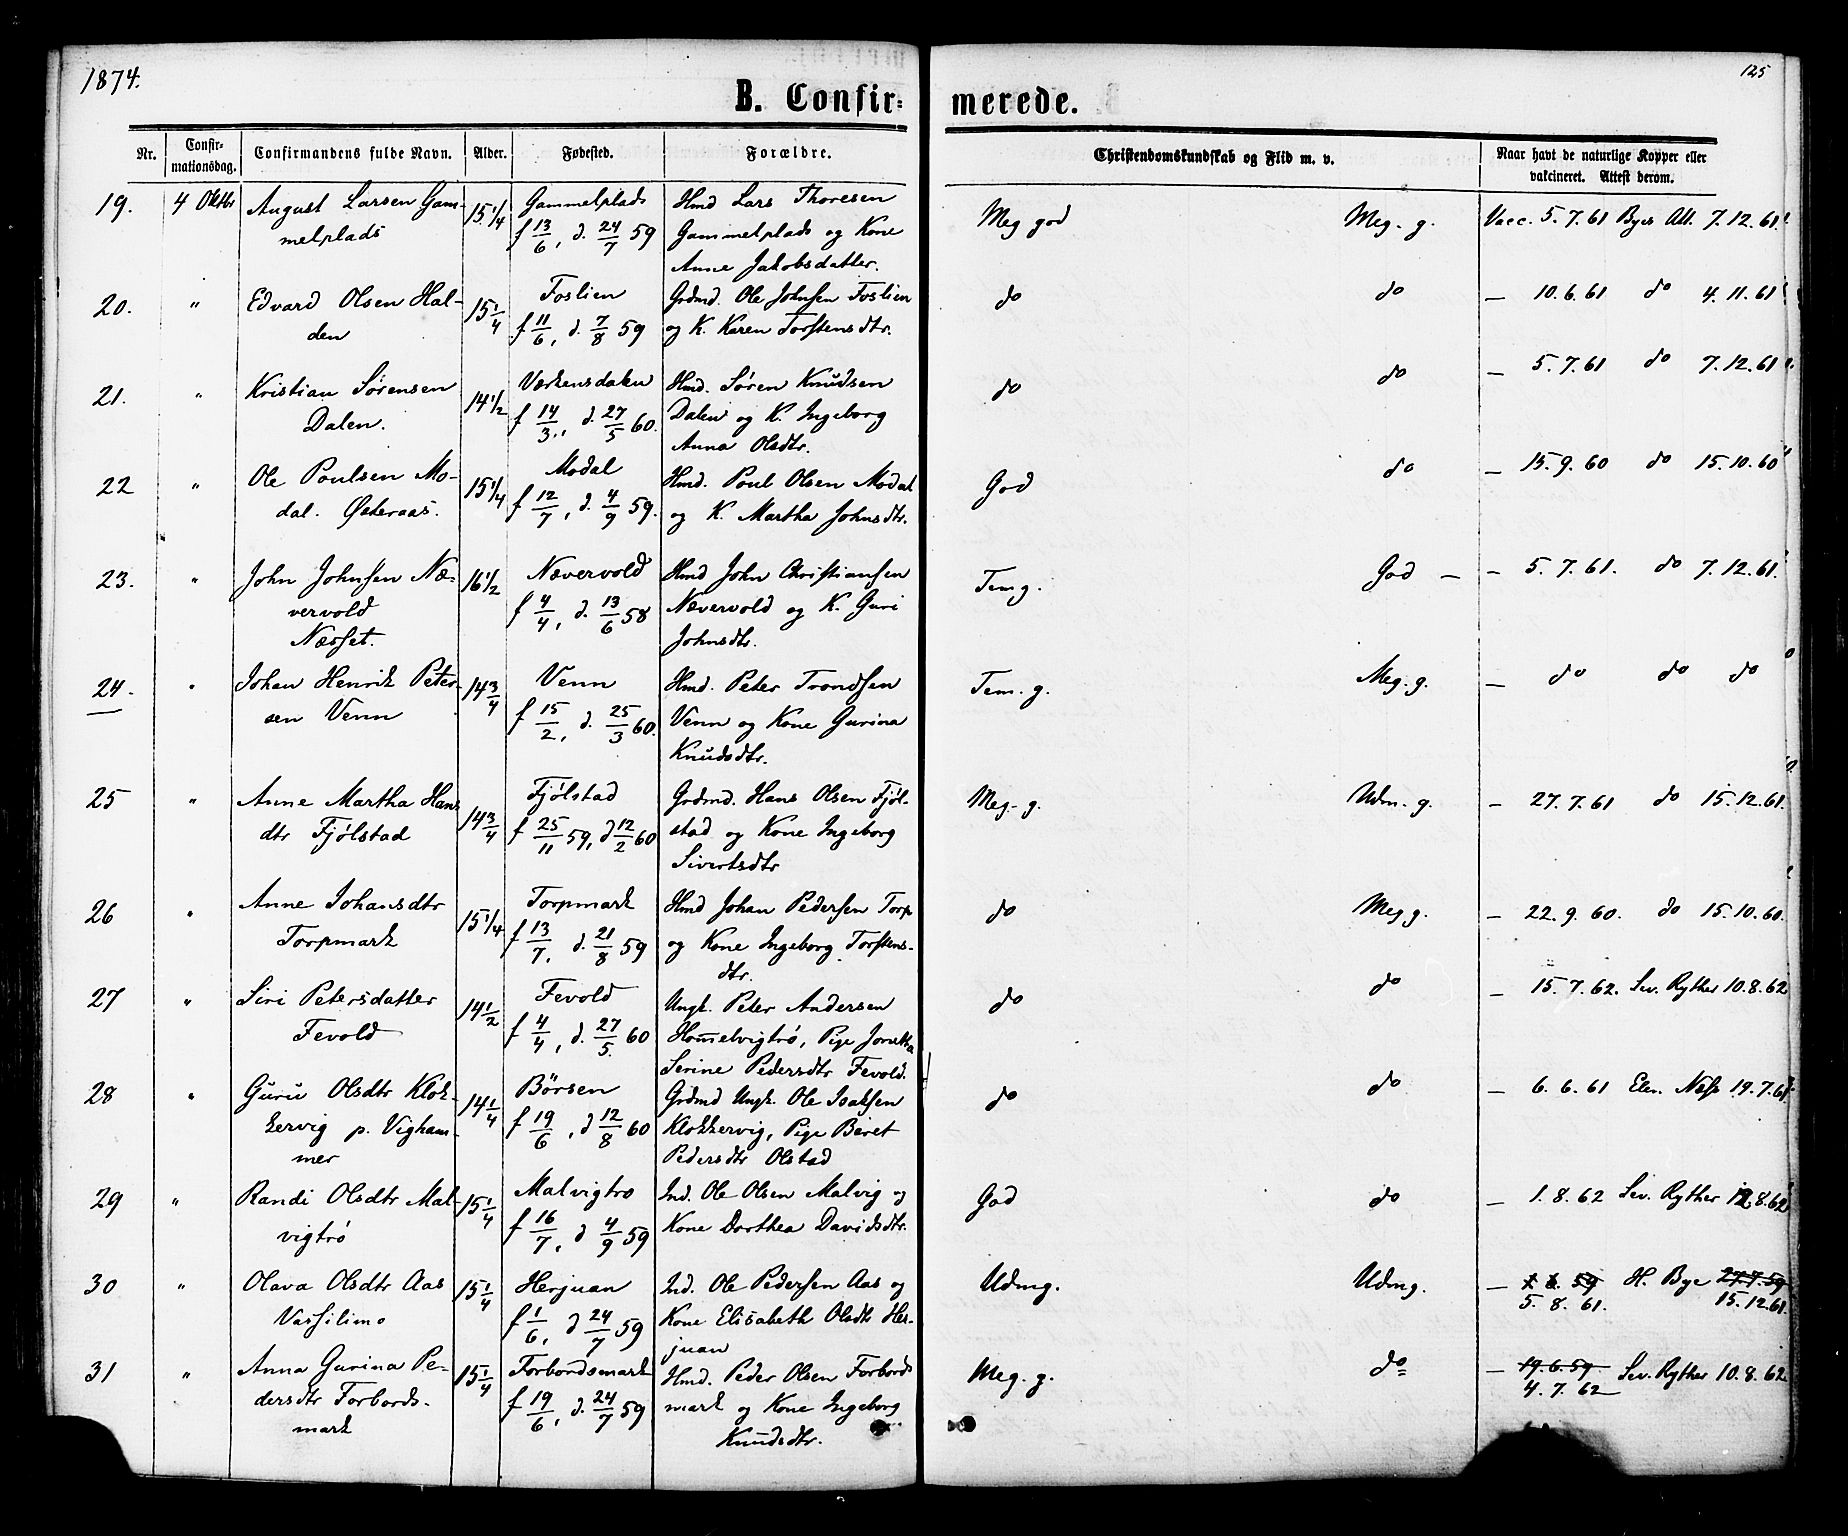 1874.
125
B. Confir= merede.
Nr. Confir= mationsdag. Confirmandens fulde Navn. Alder. Fødested. Forældre. Christendomskundskab og Flid m. v. Naar havt de naturlige Kopper eller vakcineret. Attest derom.
19. 4 Oktbr August Larsen Gam- 15 1/4 Gammelplads Hmd Lars Thoresen Meg god Meg. g. Vacc. 5.7.61 Byes Att. 7.12.61.
melplads f 13/6, d. 24/7 59 Gammelplads og Kone
Anne Jakobsdatter.
20. " Edvard Olsen Hal- 15 1/4 Foslien Grdmd. Ole Johnsen Foslien do do — 10.6.61 do 4.11.61
den f 11/6, d. 7/8 59 og K. Karen Torstensdtr.
21. " Kristian Sørensen 14 1/2 Værkensdalen Hmd. Søren Knudsen do do — 5.7.61 do 7.12.61
Dalen. f 14/3, d. 27/5 60. Dalen og K. Ingeborg
Anna Olsdtr.
22 " Ole Poulsen Mo- 15 1/4 Modal Hmd. Poul Olsen Modal God do — 15.9.60 do 15.10.60
dal. Østeraas. f 12/7, d. 4/9 59. og K. Martha Johnsdtr.
23. " John Johnsen Næ- 16 1/2 Nævervold Hmd John Christiansen Tem g. God — — 5.7.61. do 7.12.61.
vervold f 4/4, d. 13/6 58 Nævervold og K. Guri
Næsset. Johnsdtr.
24. " Johan Henrik Peter- 14 3/4 Venn Hmd. Peter Trondsen Tem. g. Meg. g. — do do do
sen Venn f 15/2, d. 25/3 60. Venn og Kone Gurina
Knudsdtr.
25 " Anne Martha Hans 14 3/4 Fjølstad Grdmd. Hans Olsen Fjøl- Meg. g. Udm. g. — 27.7.61 do 15.12.61.
dtr Fjølstad f 25/11 59, d 12/2 60 stad og Kone Ingeborg
Sivertsdtr
26 " Anne Johansdtr 15 1/4 Torpmark Hmd Johan Pedersen Torp do Meg g. — 22.9.60. do 15.10.60.
Torpmark f 13/7, d. 21/8 59 og Kone Ingeborg Torstens-
dtr.
27 " Siri Petersdatter 14 1/2 Fevold Ungk. Peter Andersen do do — 15.7.62. Sev. Ryther 10.8.62
Fevold f 4/4, d. 27/5. 60 Hommelvigtrø, Pige
Serine Pedersdtr Fevold.
28 " Guru Olsdtr Klok- 14 1/4 Börsen Grdmd Ungk. Ole Isaksen do do — 6.6.61 Elen. Næss 19.7.61.
kervig p. Vigham- f 19/6, d 12/8 60 Klokkervig, Pige Beret
mer Pedersdtr Olstad
29 " Randi Olsdtr Mal- 15 1/4 Malvigtro Ind. Ole Olsen Malvig og God do — 1.8.62 Sev. Ryther 12.8.62
vigtrø f 16/7, d 4/9 59 Kone Dorthea Davidsdtr.
30 " Olava Olsdtr Aas 15 1/4 Herjuan Ind. Ole Pedersen Aas og Udmg. Udmg. — 1 6. 59 H. Bye 27.7.59
Vassilimo f 1/6, d 24/7 59 Kone Elisabeth Olsdtr Her- 5. 8. 61. 15.12.61.
juan
31 " Anna Gurina Pe- 15 1/4 Forbordsmark Hmd. Peder Olsen Forbords Meg. g. do — 19.6.59 Sev. Ryther 10.8.62
dersdtr Forbords- f 19/6, d. 24/7 59 mark og Kone Ingeborg 4.7.62
mark Knudsdtr.